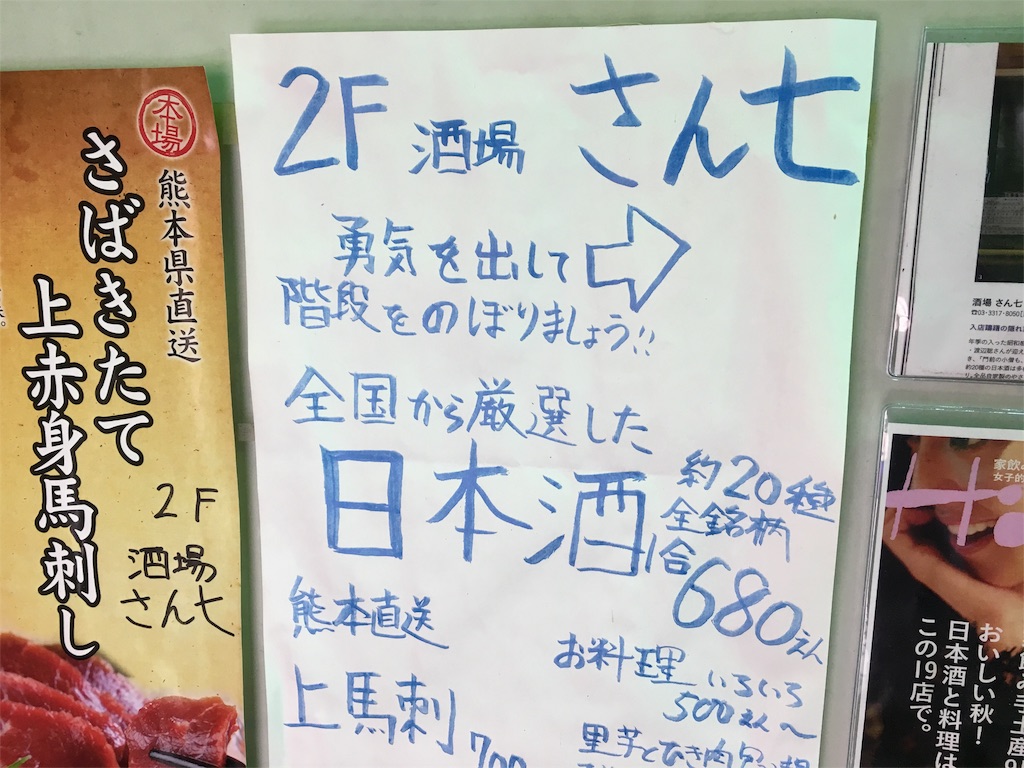 本場
熊本県直送
さばきたて
上赤身馬刺し
2F
酒場
さん七
2F 酒場 さん七
勇気を出して
階段をのぼりましょう!!
全国から厳選した
日本酒
約20種
全銘柄
1合
680えん
熊本直送
上馬刺
700
お料理いろいろ
500えん〜
里芋とひき肉
酒場 さん七
☎03-3317-8050
年季の入った昭和
約20種の日本酒は
家飲
女子的
おいしい秋!
日本酒と料理は
この19店で。